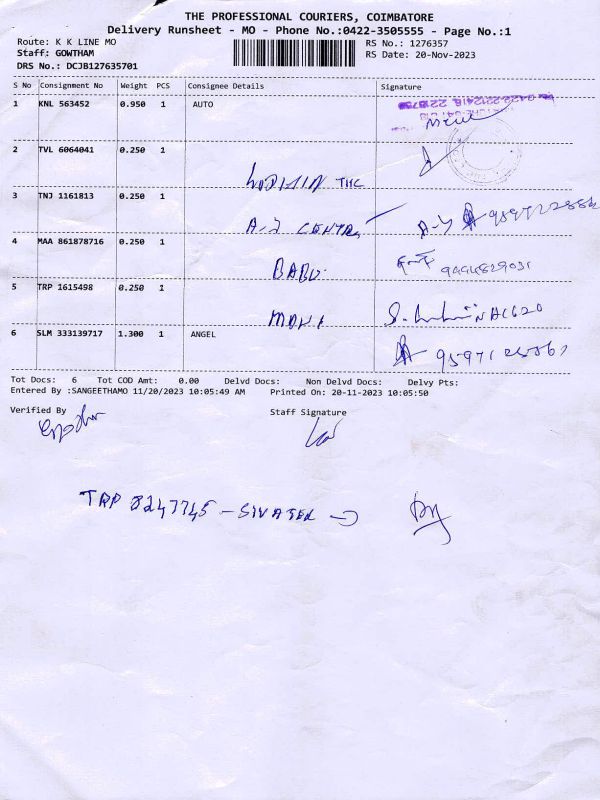 THE PROFESSIONAL COURIERS, COIMBATORE
Delivery Runsheet - MO - Phone No.:0422-3505555 - Page No.:1
Route: K K LINE MO RS No.: 1276357
Staff: GOWTHAM RS Date: 20-Nov-2023
DRS No.: DCJB127635701
S No Consignment No Weight PCS Consignee Details Signature
1 KNL 563452 0.950 1 AUTO
2 TVL 6064041 0.250 1
THC
3 TNJ 1161813 0.250 1
A-Z CENTRE
4 MAA 861878716 0.250 1
BABU 9994829031
5 TRP 1615498 0.250 1
MANI
6 SLM 333139717 1.300 1 ANGEL
Tot Docs: 6 Tot COD Amt: 0.00 Delvd Docs: Non Delvd Docs: Delvy Pts:
Entered By :SANGEETHAMO 11/20/2023 10:05:49 AM Printed On: 20-11-2023 10:05:50
Verified By Staff Signature
TRP 8247745 -